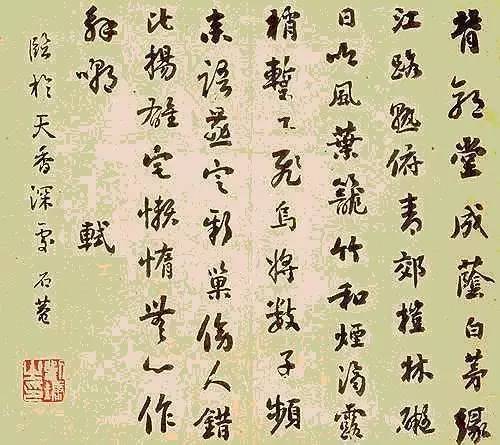 背郭堂成蔭白茅緣
江路熟俯青郊榿林礙
日吟風葉籠竹和煙滴露
梢暫下飛烏將數子頻
来語燕定新巢傍人錯
比揚雄宅懶惰無心作
解嘲 軾
臨於天香深處 石菴